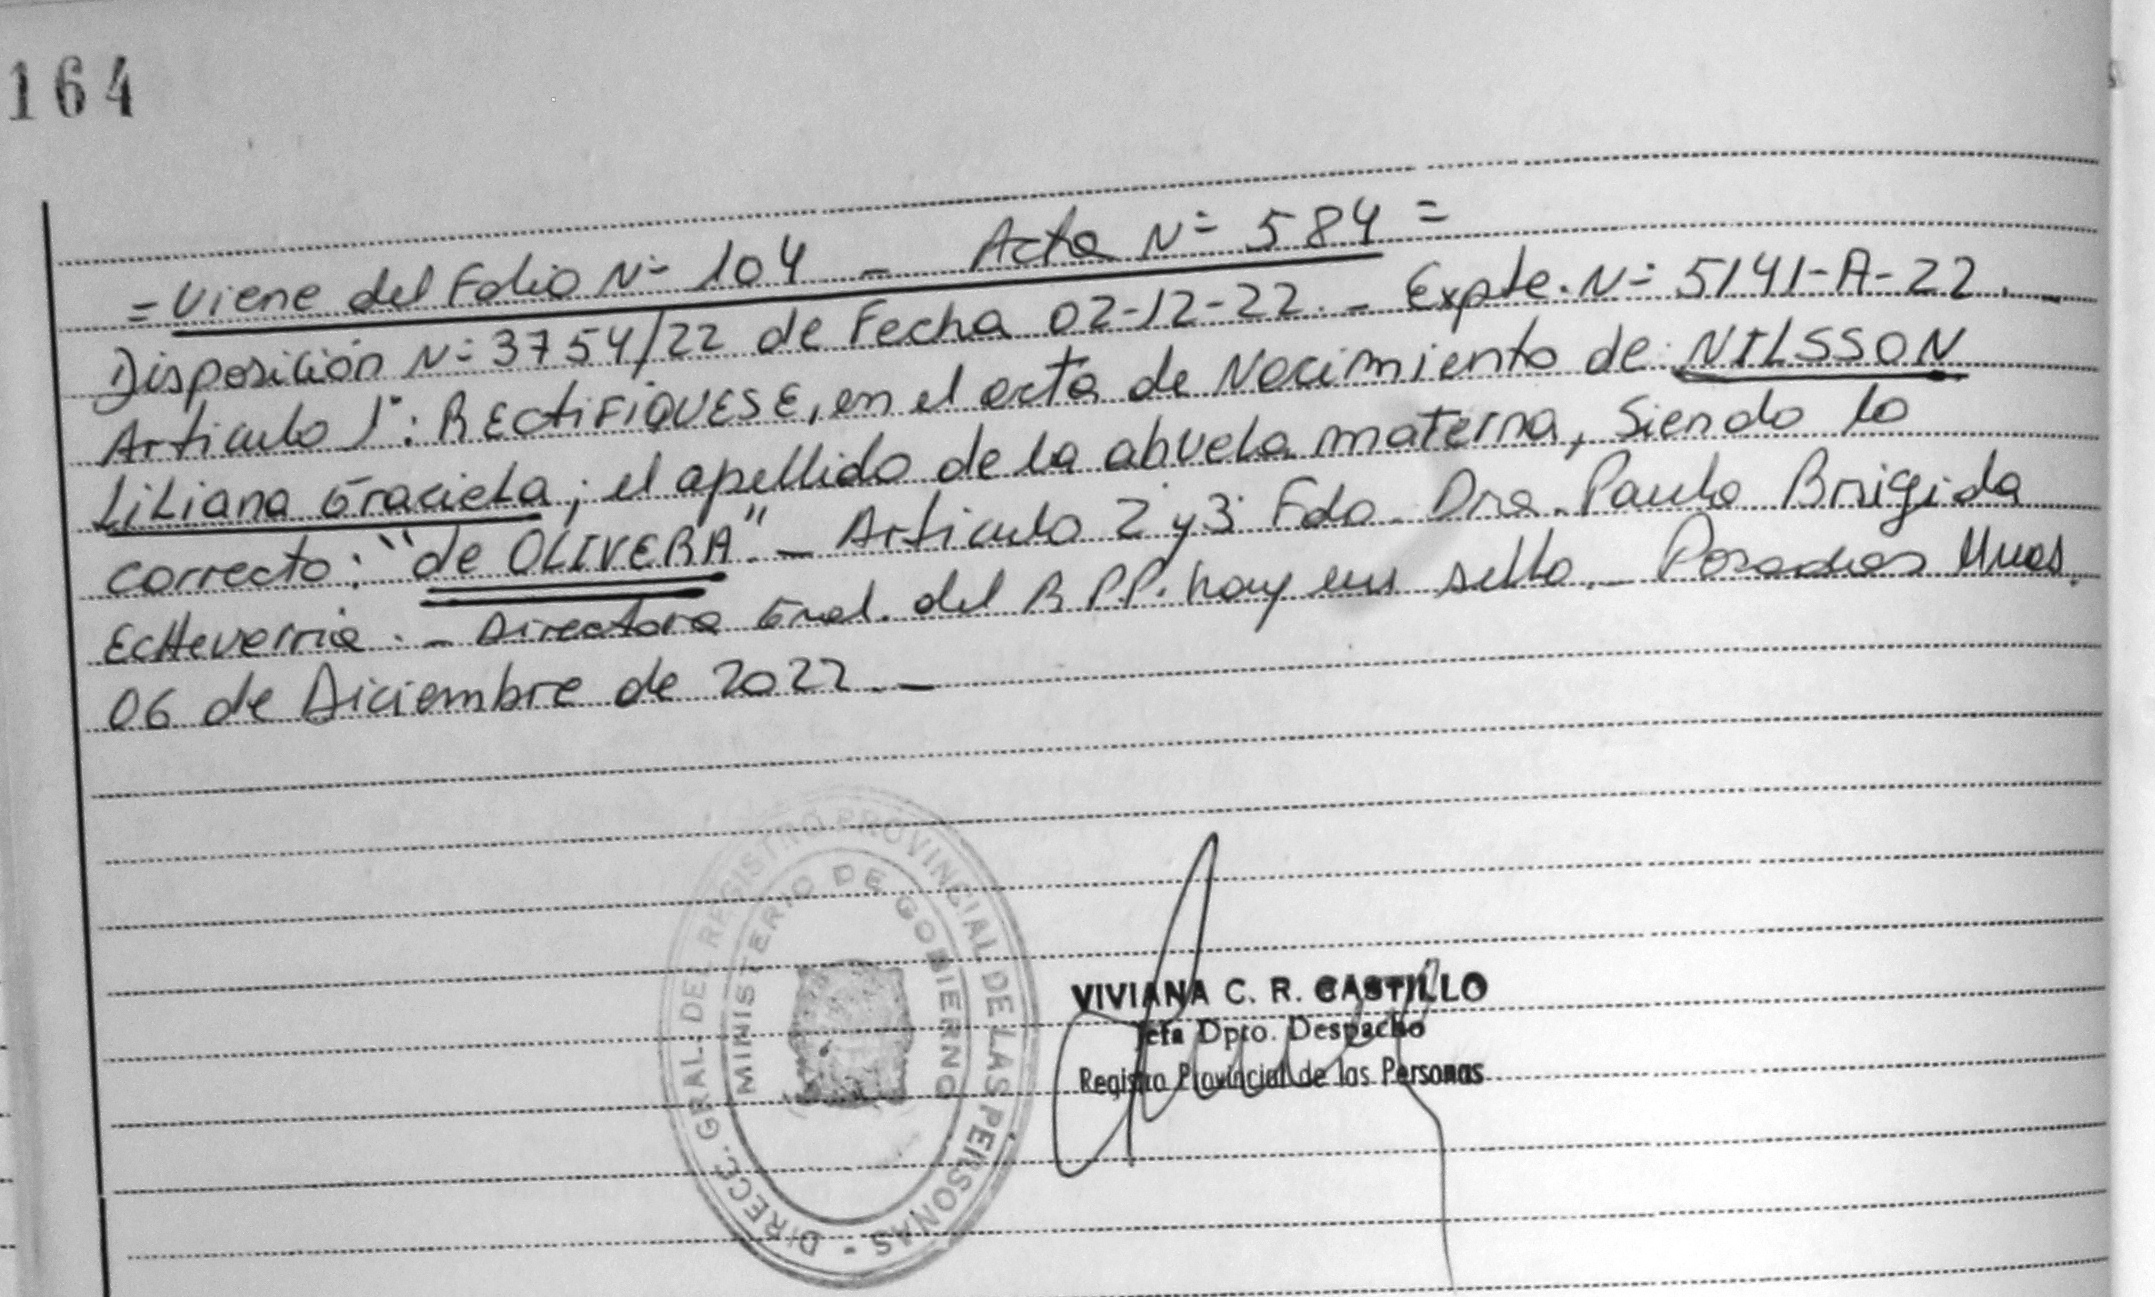 164
= Viene del Folio Nº 104 - Acta Nº 584 =
Disposición Nº 3754/22 de Fecha 02-12-22. - Expte. Nº 5141-A-22. -
Articulo 1º: RECTIFIQUESE, en el acta de Nacimiento de: NILSSON
Liliana Graciela; el apellido de la abuela materna, siendo lo
correcto: "de OLIVERA" - Articulo 2º y 3º Fdo. Dra. Paula Brigida
Echeverria. - Directora Gral. del R.P.P. hay un sello. - Posadas Mnes.
06 de Diciembre de 2022. -
DIRECC. GRAL. DEL REGISTRO PROVINCIAL DE LAS PERSONAS -
MINISTERIO DE GOBIERNO
VIVIANA C. R. CASTILLO
Jefa Dpto. Despacho
Registro Provincial de las Personas